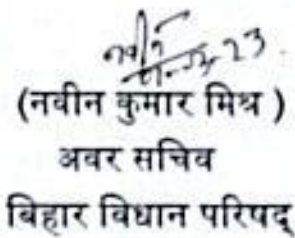 23.
(नवीन कुमार मिश्र )
अवर सचिव
बिहार विधान परिषद्